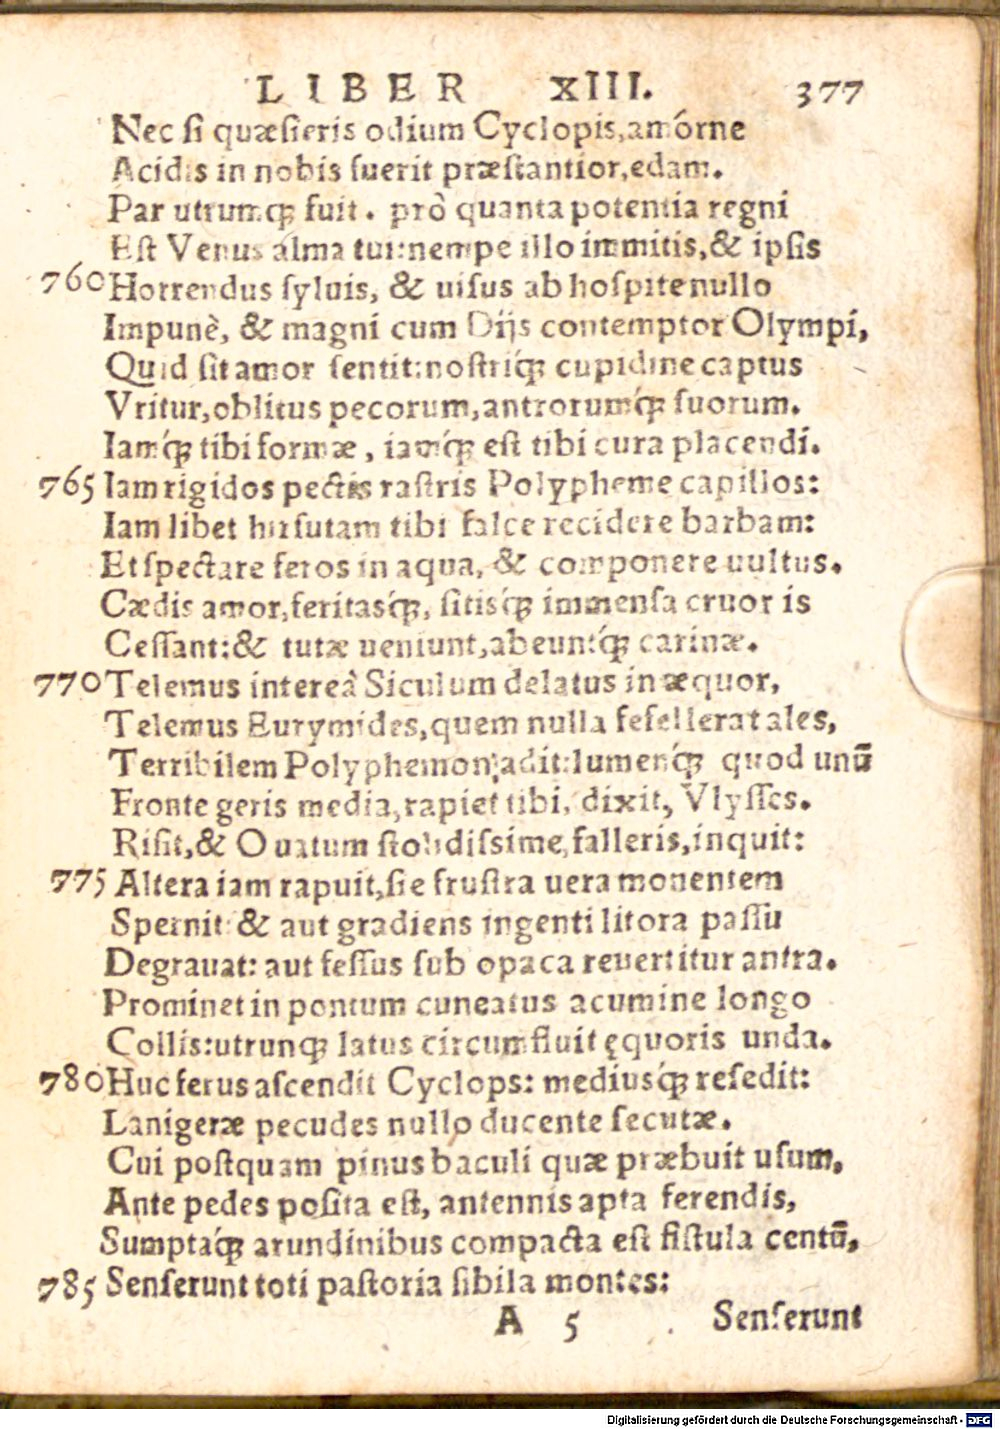 LIBER XIII. 377
Nec ſi quæſieris odium Cyclopis, amórne
Acidis in nobis fuerit præſtantior, edam.
Par utrumq́ꝫ fuit. prò quanta potentia regni
Eſt Venus alma tui: nempe illo immitis, & ipſis
760 Horrendus ſyluis, & uiſus ab hoſpite nullo
Impunè, & magni cum Dijs contemptor Olympi,
Quid ſit amor ſentit: noſtriq́ꝫ cupidine captus
Vritur, oblitus pecorum, antrorumq́ꝫ ſuorum.
Iamq́ꝫ tibi formæ, iamq́ꝫ eſt tibi cura placendi.
765 Iam rigidos pectis raſtris Polypheme capillos:
Iam libet hirſutam tibi falce recidere barbam:
Et ſpectare feros in aqua, & componere uultus.
Cædis amor, feritasq́ꝫ, ſitisq́ꝫ immenſa cruoris
Ceſſant: & tutæ ueniunt, abeuntq́ꝫ carinæ.
770 Telemus intereà Siculum delatus in æquor,
Telemus Eurymides, quem nulla fefellerat ales,
Terribilem Polyphemon adit: lumenq́ꝫ quod unū
Fronte geris media, rapiet tibi, dixit, Vlyſſes.
Riſit, & O uatum ſtolidiſsime, falleris, inquit:
775 Altera iam rapuit, ſic fruſtra uera monentem
Spernit: & aut gradiens ingenti litora paſſu
Degrauat: aut feſſus ſub opaca reuertitur antra.
Prominet in pontum cuneatus acumine longo
Collis: utrunqꝫ latus circumfluit ęquoris unda.
780 Huc ferus aſcendit Cyclops: mediusq́ꝫ reſedit:
Lanigeræ pecudes nullo ducente ſecutæ.
Cui poſtquam pinus baculi quæ præbuit uſum,
Ante pedes poſita eſt, antennis apta ferendis,
Sumptaq́ꝫ arundinibus compacta eſt fiſtula centū,
785 Senſerunt toti paſtoria ſibila montes:
A 5 Senſerunt
Digitalisierung gefördert durch die Deutsche Forschungsgemeinschaft - DFG